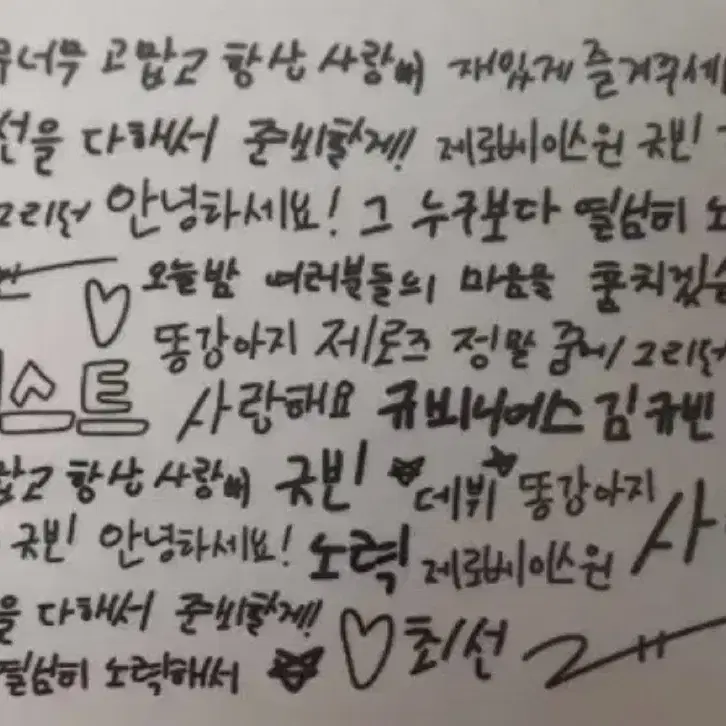 너무 고맙고 항상 사랑해 재밌게 즐겨주세
선을 다해서 준비할게!! 제로베이스원 규빈
그리던 안녕하세요! 그 누구보다 열심히 노
오늘밤 여러분들의 마음을 훔치겠습
똥강아지 제로즈 정말 꿈에 그리던
스트 사랑해요 규비니어스 김규빈
맙고 항상 사랑해 규빈 데뷔 똥강아지
규빈 안녕하세요! 노력 제로베이스원 사
을 다해서 준비할게!! 최선
열심히 노력해서